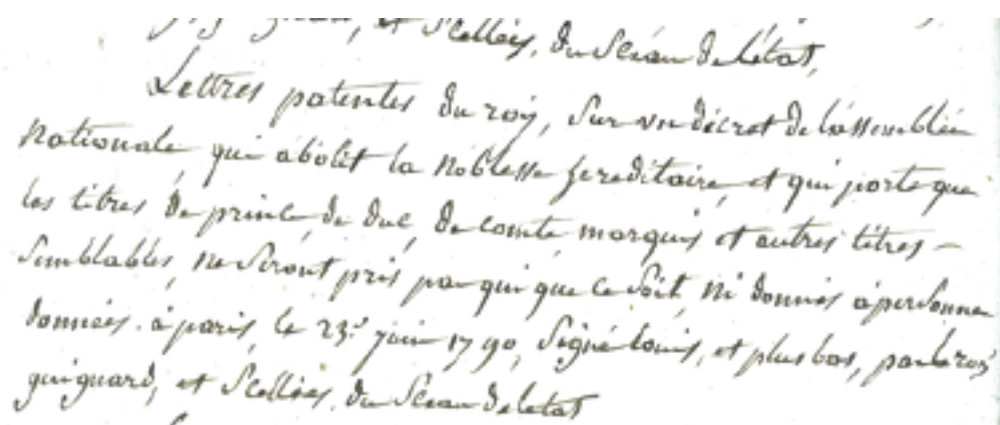 et Scellées, du Sceau de létat,
Lettres patentes du roy, Sur un décret de lassemblée
nationale qui abolit la noblesse hereditaire, et qui porte que
les titres de prince, de duc, de comte, marquis et autres titres -
Semblables, ne Seront pris par qui que ce soit, ni donnés à personne
données à paris, le 23e juin 1790, Signé louis, et plus bas, par le roy
guignard, et Scellées, du Sceau de letat